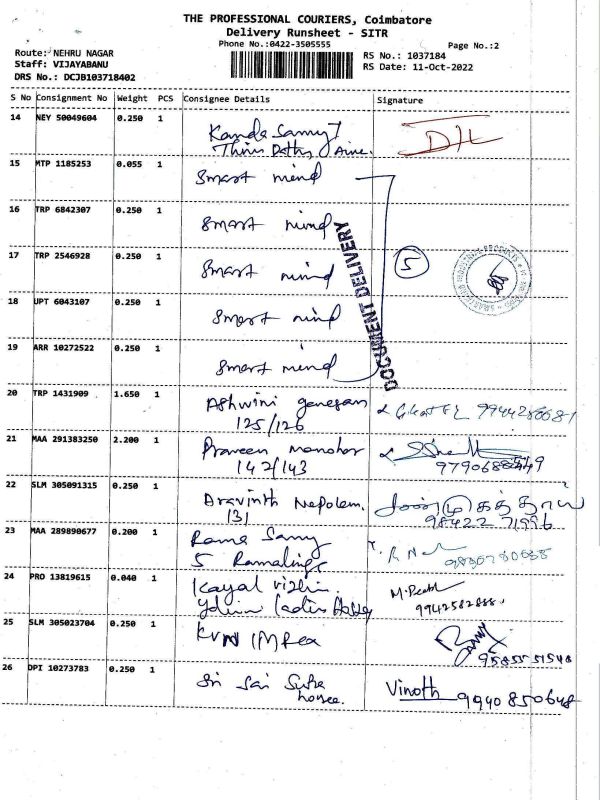 THE PROFESSIONAL COURIERS, Coimbatore
Delivery Runsheet - SITR
Phone No.:0422-3505555
Page No.:2
Route: NEHRU NAGAR
Staff: VIJAYABANU
DRS No.: DCJB103718402
RS No.: 1037184
RS Date: 11-Oct-2022
S No Consignment No Weight PCS Consignee Details Signature
14 NEY 50049604 0.250 1 Kanda Samy
15 MTP 1185253 0.055 1 Smart mind
16 TRP 6842307 0.250 1 Smart mind
17 TRP 2546928 0.250 1 Smart mind 5
18 UPT 6043107 0.250 1 Smart mind
19 ARR 10272522 0.250 1 Smart mind
DOCUMENT DELIVERY
20 TRP 1431909 1.650 1 Ashwini ganesan
125/126
21 MAA 291383250 2.200 1 Praveen manohar
142/143
22 SLM 305091315 0.250 1 Aravinth Nepolean
131 98422 71996
23 MAA 289890677 0.200 1 Rama Samy
5 Ramalinga
24 PRO 13819615 0.040 1 Kayal vizhi
25 SLM 305023704 0.250 1 KVN IMPex
26 DPI 10273783 0.250 1 Sri Sai Vinoth 99408 50648
house.